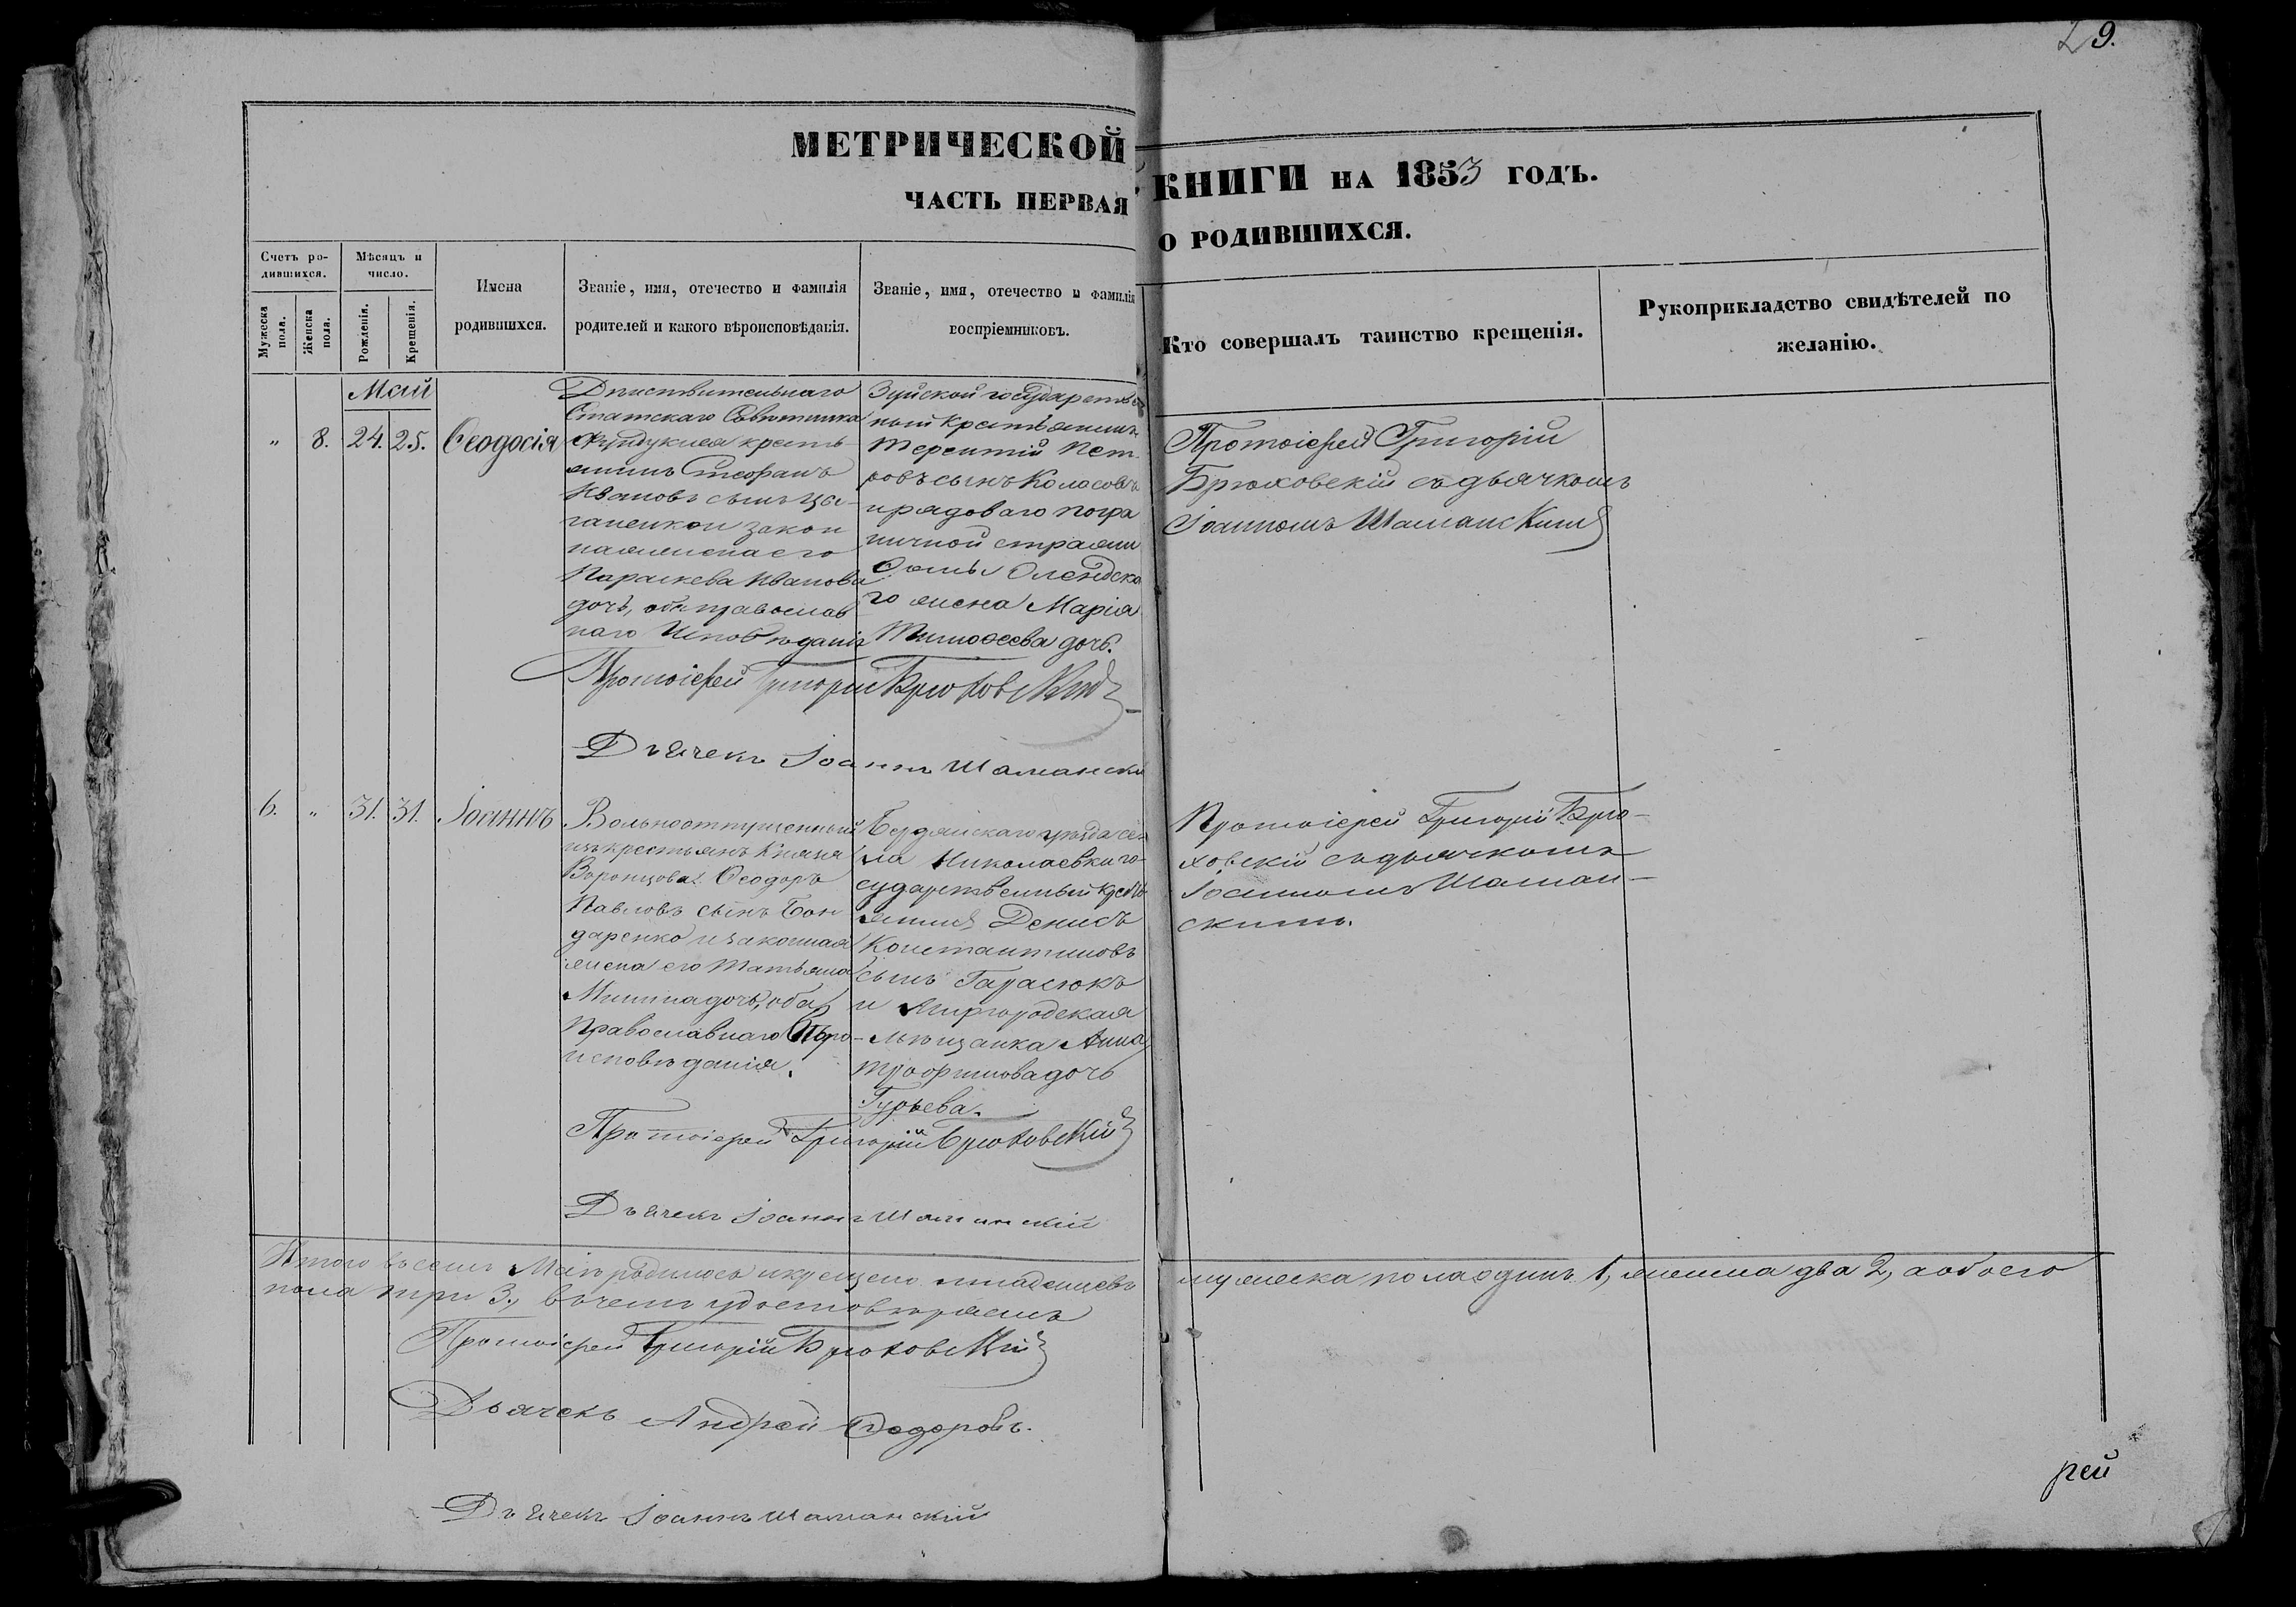 29.
МЕТРИЧЕСКОЙ КНИГИ НА 1853 ГОДЪ.
ЧАСТЬ ПЕРВАЯ О РОДИВШИХСЯ.
Счетъ ро-
дившихся.
Мужеска
пола.
Женска
пола.
Мѣсяцъ и
число.
Рожденія.
Крещенія.
Имена
родившихся.
Званіе, имя, отечество и фамилія
родителей и какого вѣроисповѣданія.
Званіе, имя, отечество и фамилія
воспріемниковъ.
Кто совершалъ таинство крещенія.
Рукоприкладство свидѣтелей по
желанію.
Май
„ 8. 24. 25. Ѳеодосія
Дѣиствительнаго
Статскаго Совѣтника
Фундуклея кресть
янинъ Стефанъ
Ивановъ сынъ Цы-
ганенко и закон
ная жена его
Параскева Иванова
дочь, оба православ
наго Исповѣданія
Зуйской государствен
ный крестьянинъ
Терентій Пет
ровъ сынъ Колосовъ
и рядоваго погра
ничной стражи
Олендско
го жена Марія
Тимоѳеева дочь.
Протоіерей Григорій
Брюховскій съ дьячкомъ
Іоанномъ Шаманскимъ
Протоіерей Григорій Брюховскій
Дьячекъ Іоаннъ Шаманскій
6. „ 31. 31. Іоаннъ
Вольноотпущенный
изъ крестьянъ Князя
Воронцова Ѳеодоръ
Павловъ сынъ Бон
даренко и законная
жена его Татьяна
Минина дочь, оба
Православнаго Вѣро-
исповѣданія.
Бердянскаго уѣзда се
ла Николаевки го-
сударственный кресть
янинъ Денисъ
Константиновъ
сынъ Гарасюкъ
и Миргородская
мѣщанка Анна
дочь
Гурьева.
Протоіерей Григорій Брю-
ховскій съ дьячкомъ
Іоанномъ Шаман-
скимъ.
Протоіерей Григорій Брюховскій
Дьячекъ Іоаннъ Шаманскій
Итого въ семъ Маѣ родилось и крещено младенцевъ мужеска пола одинъ 1, женска два 2, а обоего
пола три 3, въ чемъ удостовѣряемъ
Протоіерей Григорій Брюховскій
Дьячекъ Андрей Ѳедоровъ.
Дьячекъ Іоаннъ Шаманскій
рей